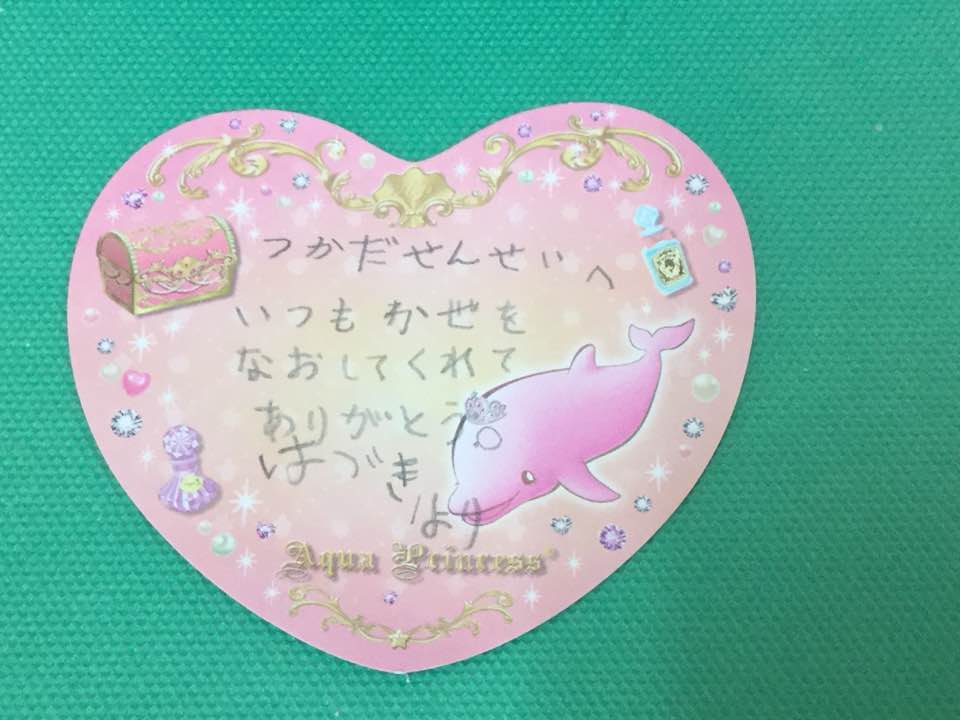 つかだせんせいへ
いつもかぜを
なおしてくれて
ありがとう。
はづきより
Aqua Princess